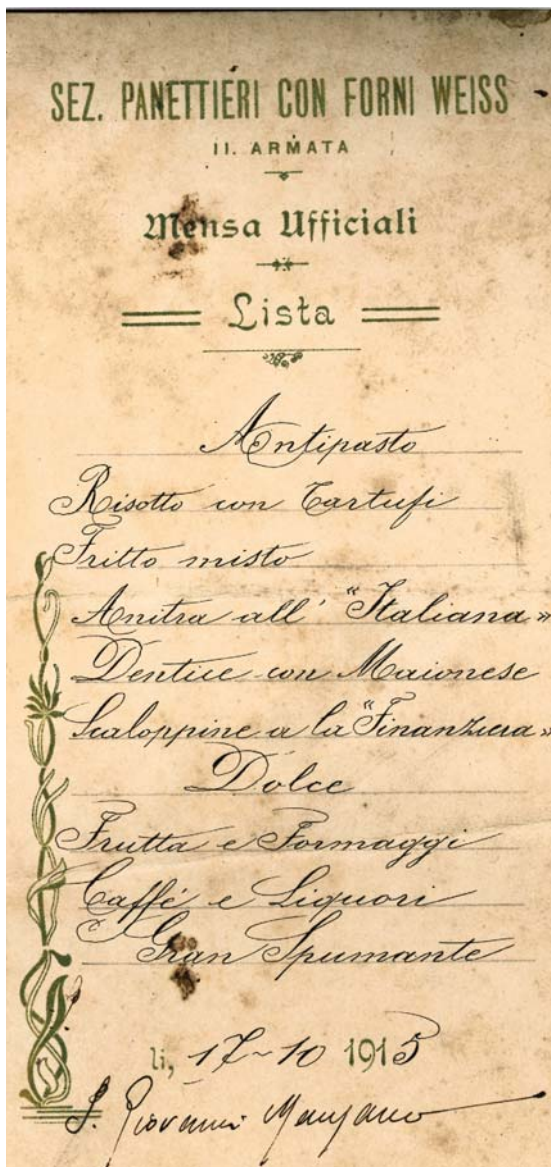 SEZ. PANETTIERI CON FORNI WEISS
II. ARMATA
Mensa Ufficiali
Lista
Antipasto
Risotto con Tartufi
Fritto misto
Anitra all' "Italiana"
Dentice con Maionese
Scaloppine a la "Finanziera"
Dolce
Frutta e Formaggi
Caffé e Liquori
Gran Spumante
li, 17-10 1915
S. Giovanni Manzano